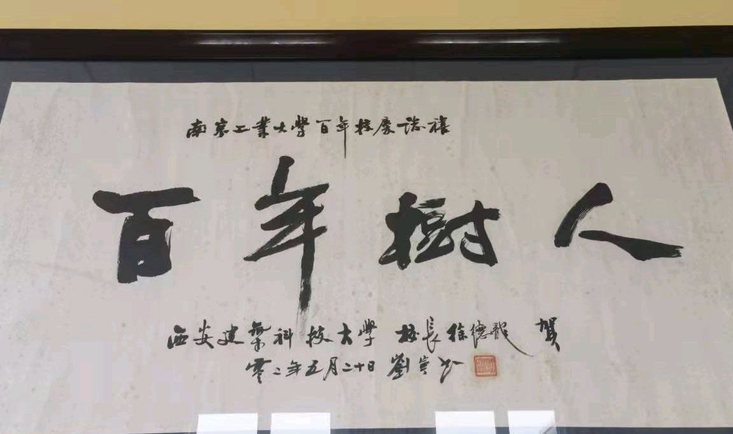 南京工業大學百年校慶誌禧
百年樹人
西安建築科技大學 校長徐德龍 賀
零二年五月二十日 劉